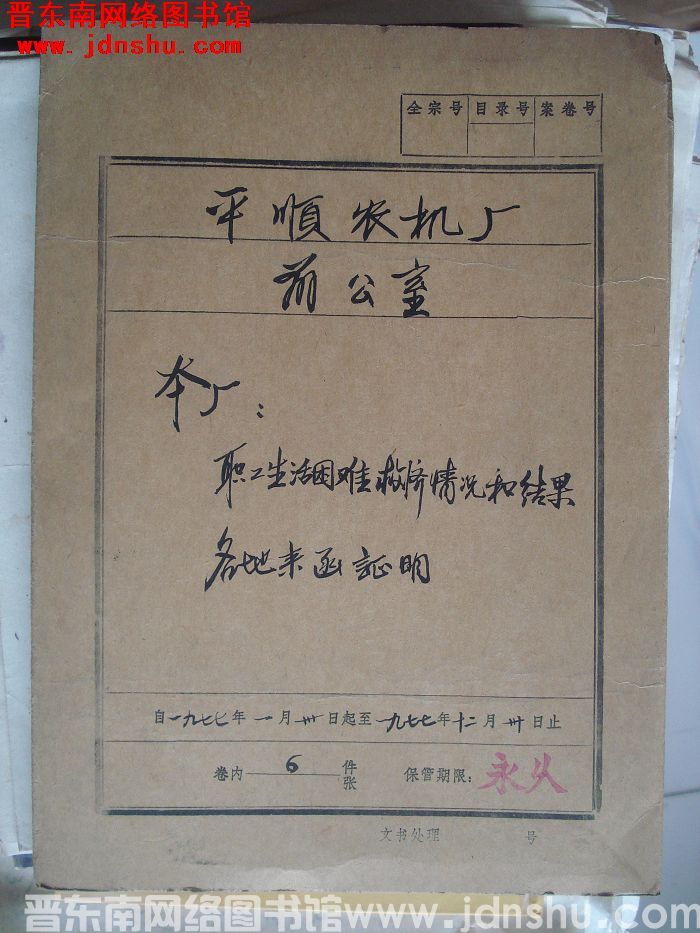 晋东南网络图书馆
www.jdnshu.com
全宗号 目录号 案卷号
平順农机厂
前公室
本厂：
职工生活困难救济情况和结果
各地来函証明
自一九七七年一月卅日起至一九七七年十二月卅日止
卷内 6 件张 保管期限：永久
文书处理 号
晋东南网络图书馆 www.jdnshu.com